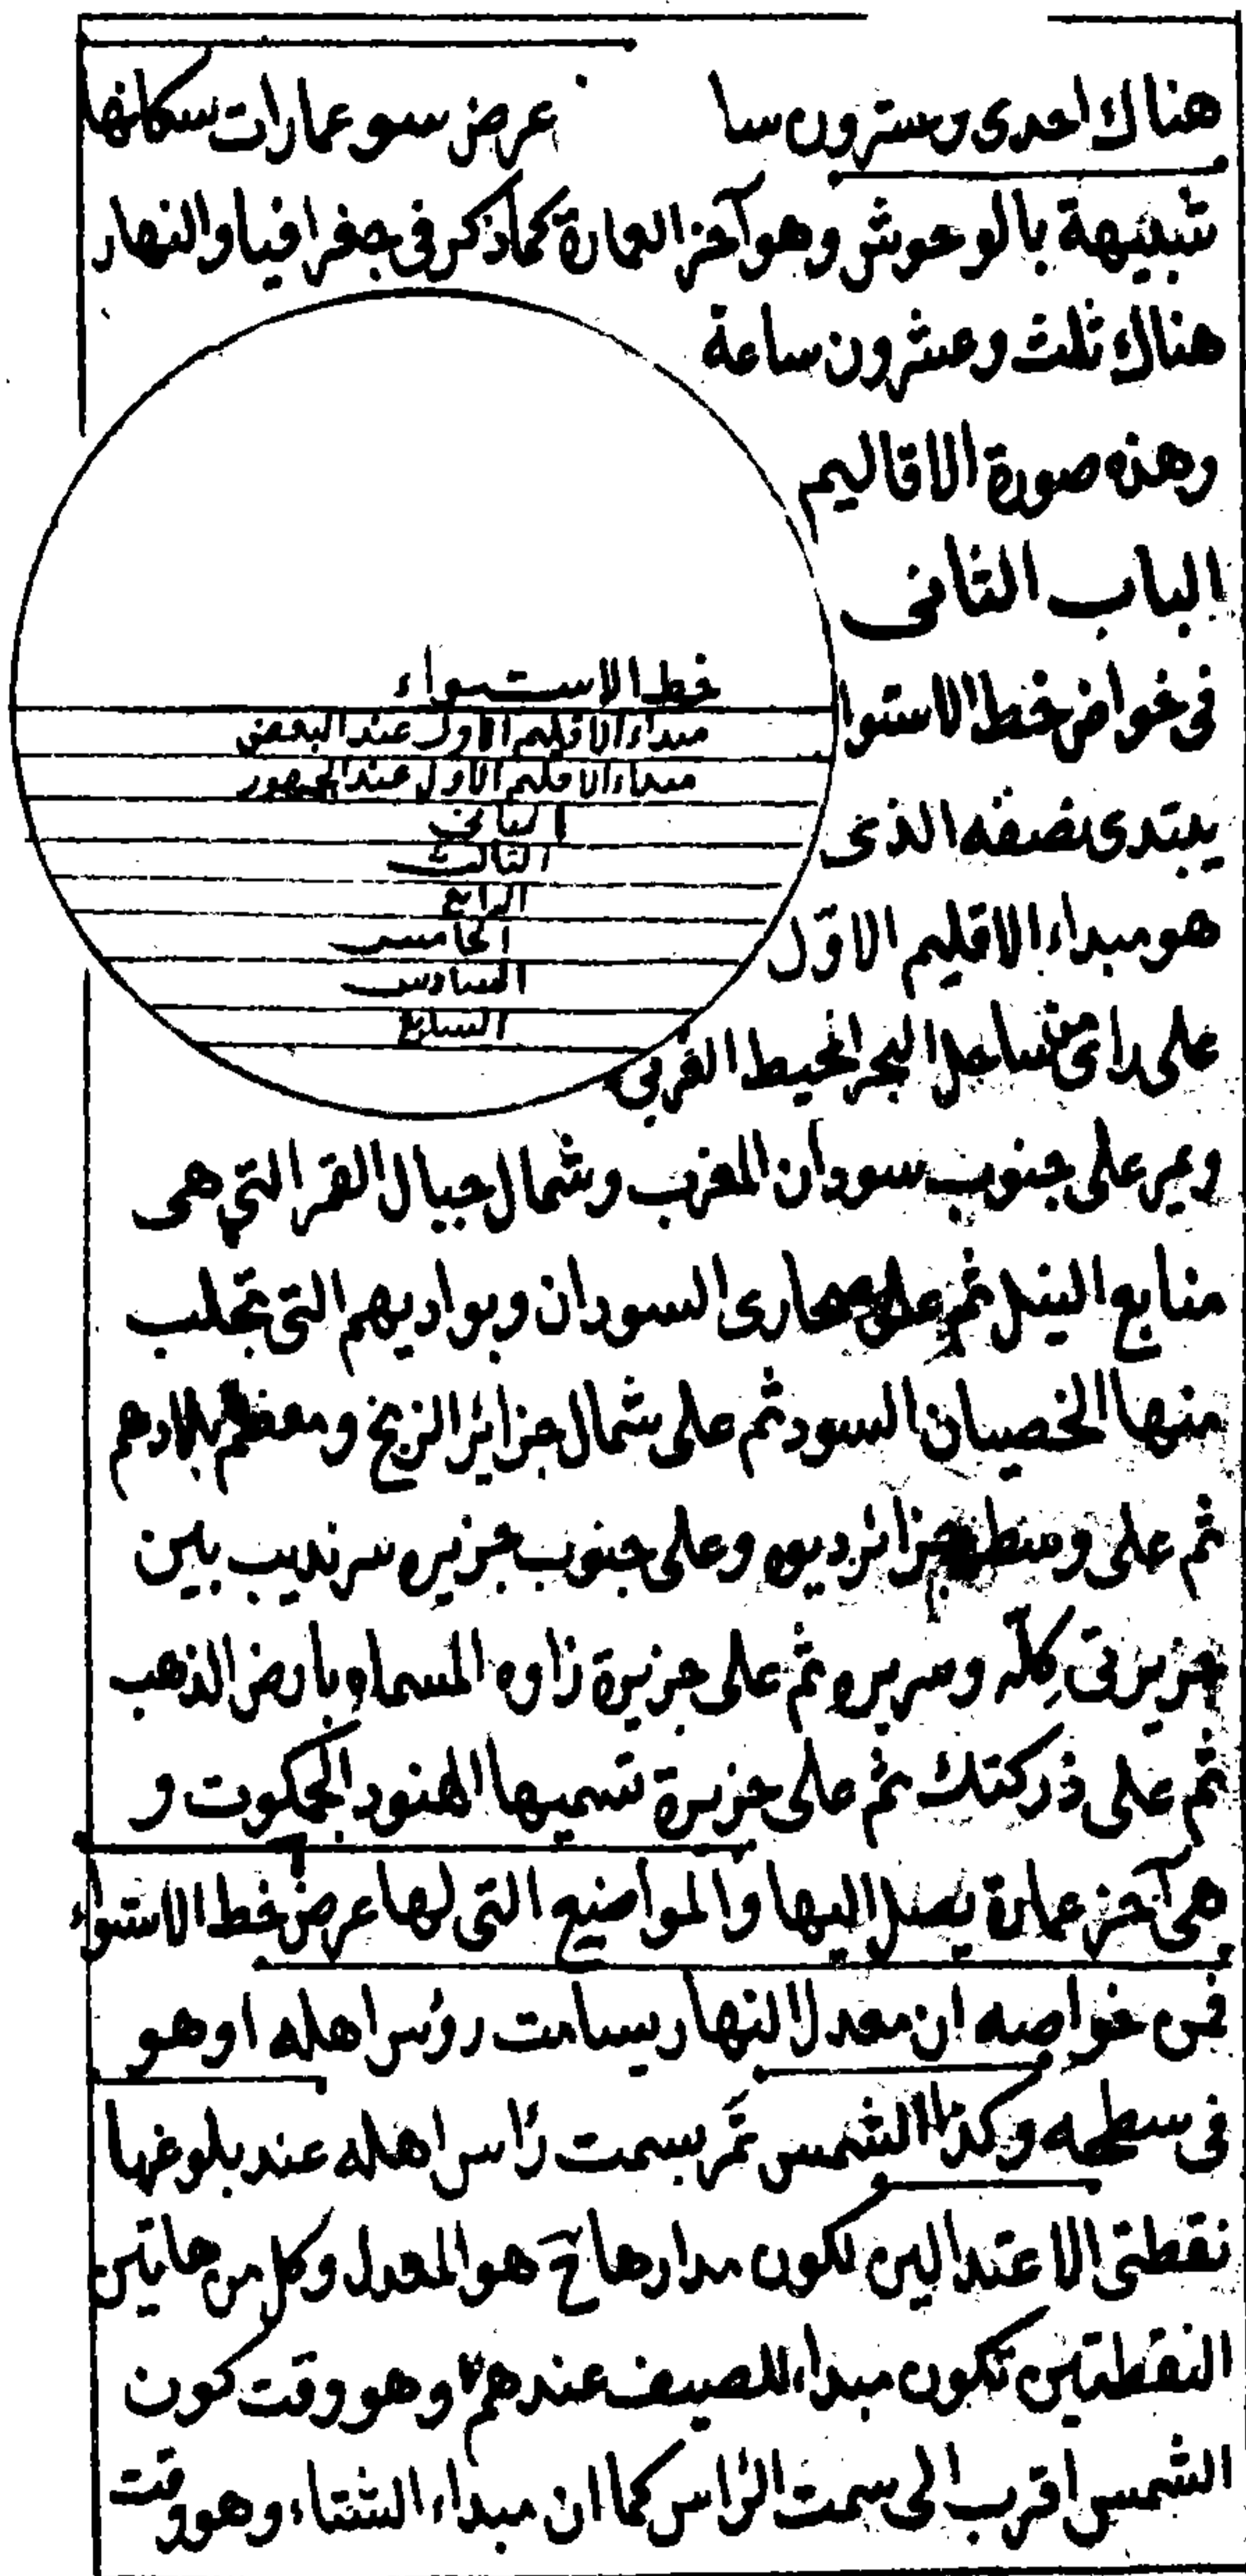 هناك احدى وعشرون سا عرض سو عمارات سكانها
شبيهة بالوحوش وهو آخر العمارة كما ذكر فى جغرافيا والنهار
هناك ثلث وعشرون ساعة
وهذه صورة الاقاليم
الباب الثانى
فى خواص خط الاستوا
يبتدى نصفه الذى
هو مبداء الاقليم الاوّل
على راى من ساحل البحر المحيط الغربى
خط الاستواء
مبداء الاقليم الاول عند البعض
مبداء الاقليم الاول عند الجمهور
الثانى
الثالث
الرابع
الخامس
السادس
السابع
ويمر على جنوب سودان المغرب وشمال جبال القمر التى هى
منابع النيل ثم على صحارى السودان وبواديهم التى تجلب
منها الخصيان السود ثم على شمال جزاير الزنج ومعظم بلادهم
ثم على وسط جزائر ديوه وعلى جنوب جزيره سرنديب بين
جزيرتى كلّه وسريره ثم على جزيرة زاوه المسماه بارض الذهب
ثم على ذركتك ثم على جزيرة تسميها الهنود الجمكوت و
هى آخر عمارة يصل اليها والمواضيع التى لها عرض خط الاستواء
فمن خواصه ان معدل النهار يسامت رؤس اهله او هو
فى سطحه وكذا الشمس تمّر بسمت رأس اهله عند بلوغها
نقطتى الاعتدالين لكون مدارها ح هو المعدل وكل من هاتين
النقطتين تكون مبداء للصيف عندهم وهو وقت كون
الشمس اقرب الى سمت الرأس كما ان مبداء الشتاء وهو وقت